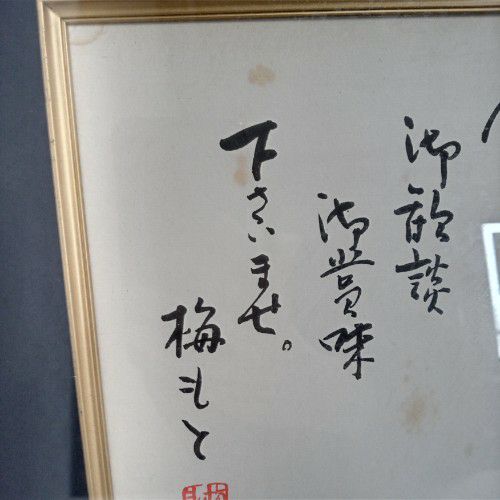 御歓談
御賞味
下さいませ。
梅もと